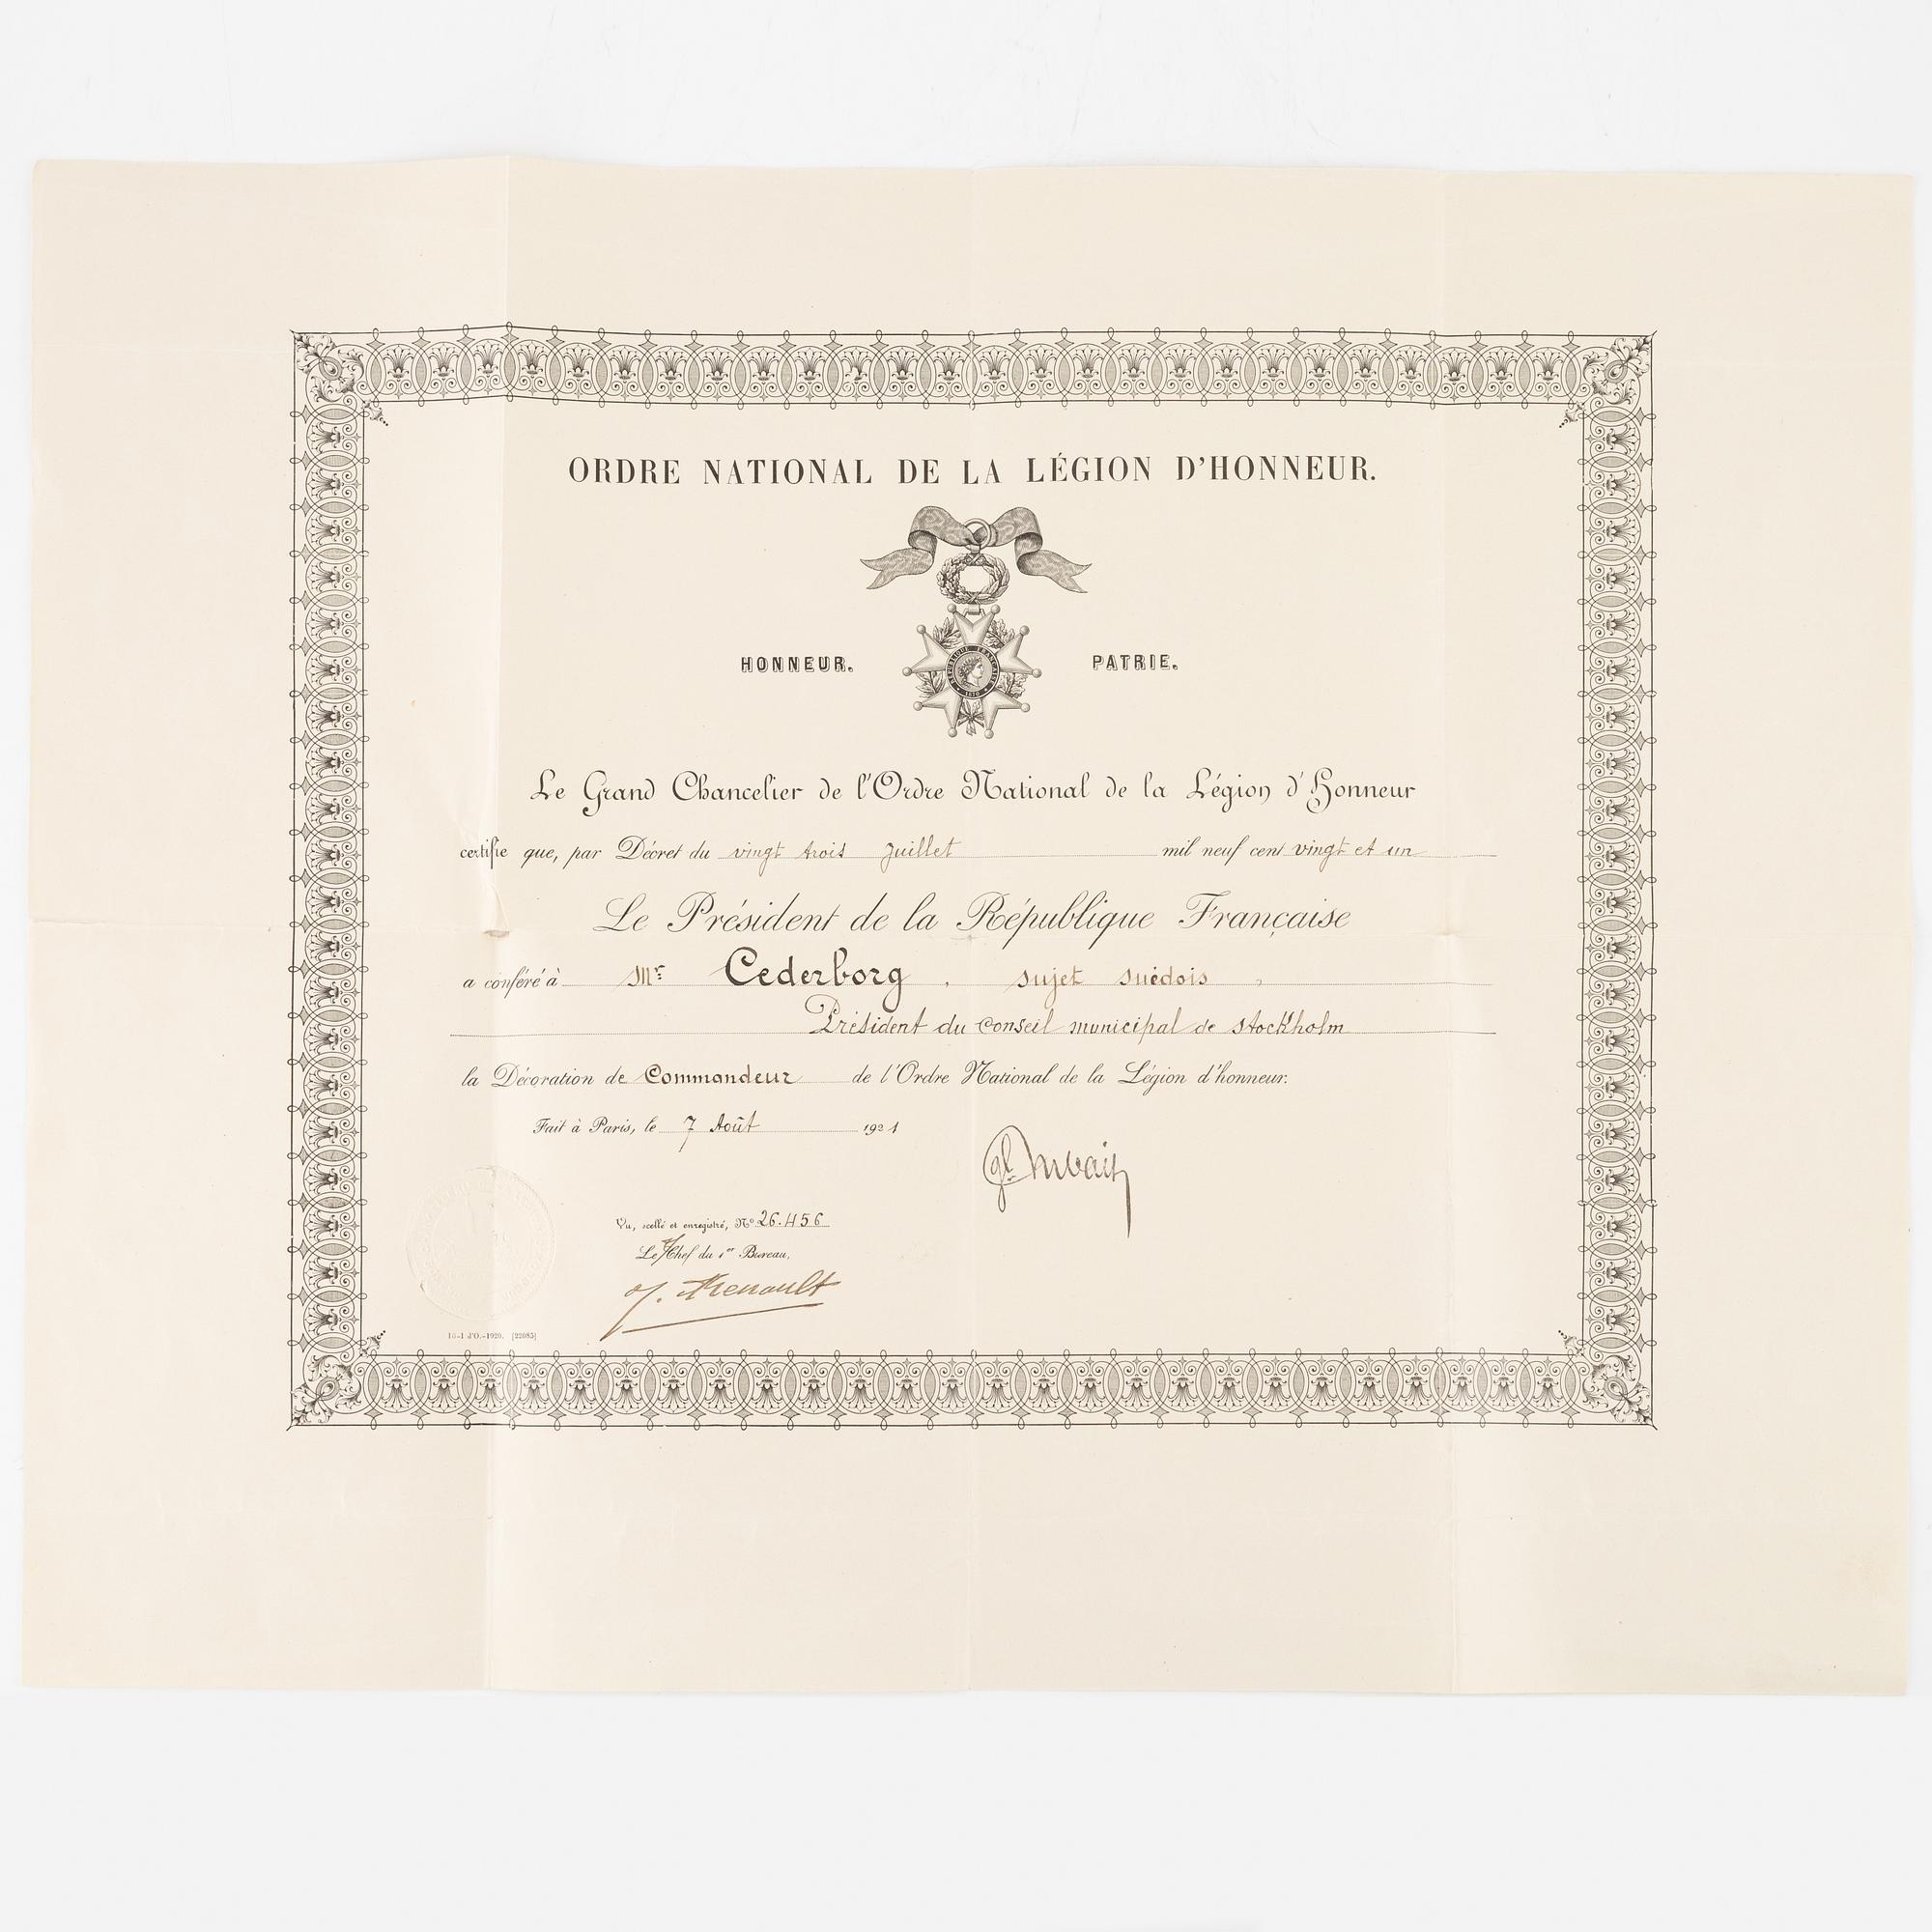 ORDRE NATIONAL DE LA LÉGION D'HONNEUR.
HONNEUR. PATRIE.
RÉPUBLIQUE FRANÇAISE 1870
Le Grand Chancelier de l'Ordre National de la Légion d'Honneur
certifie que, par Décret du vingt trois Juillet mil neuf cent vingt et un
Le Président de la République Française
a conféré à Mr Cederborg, sujet suédois,
Président du Conseil municipal de Stockholm
la Décoration de Commandeur de l'Ordre National de la Légion d'honneur.
Fait à Paris, le 7 Août 1921
Vu, scellé et enregistré, No 26.456
Le Chef du 1er Bureau,
Renault
10-1 J'O.-1920. [22085]